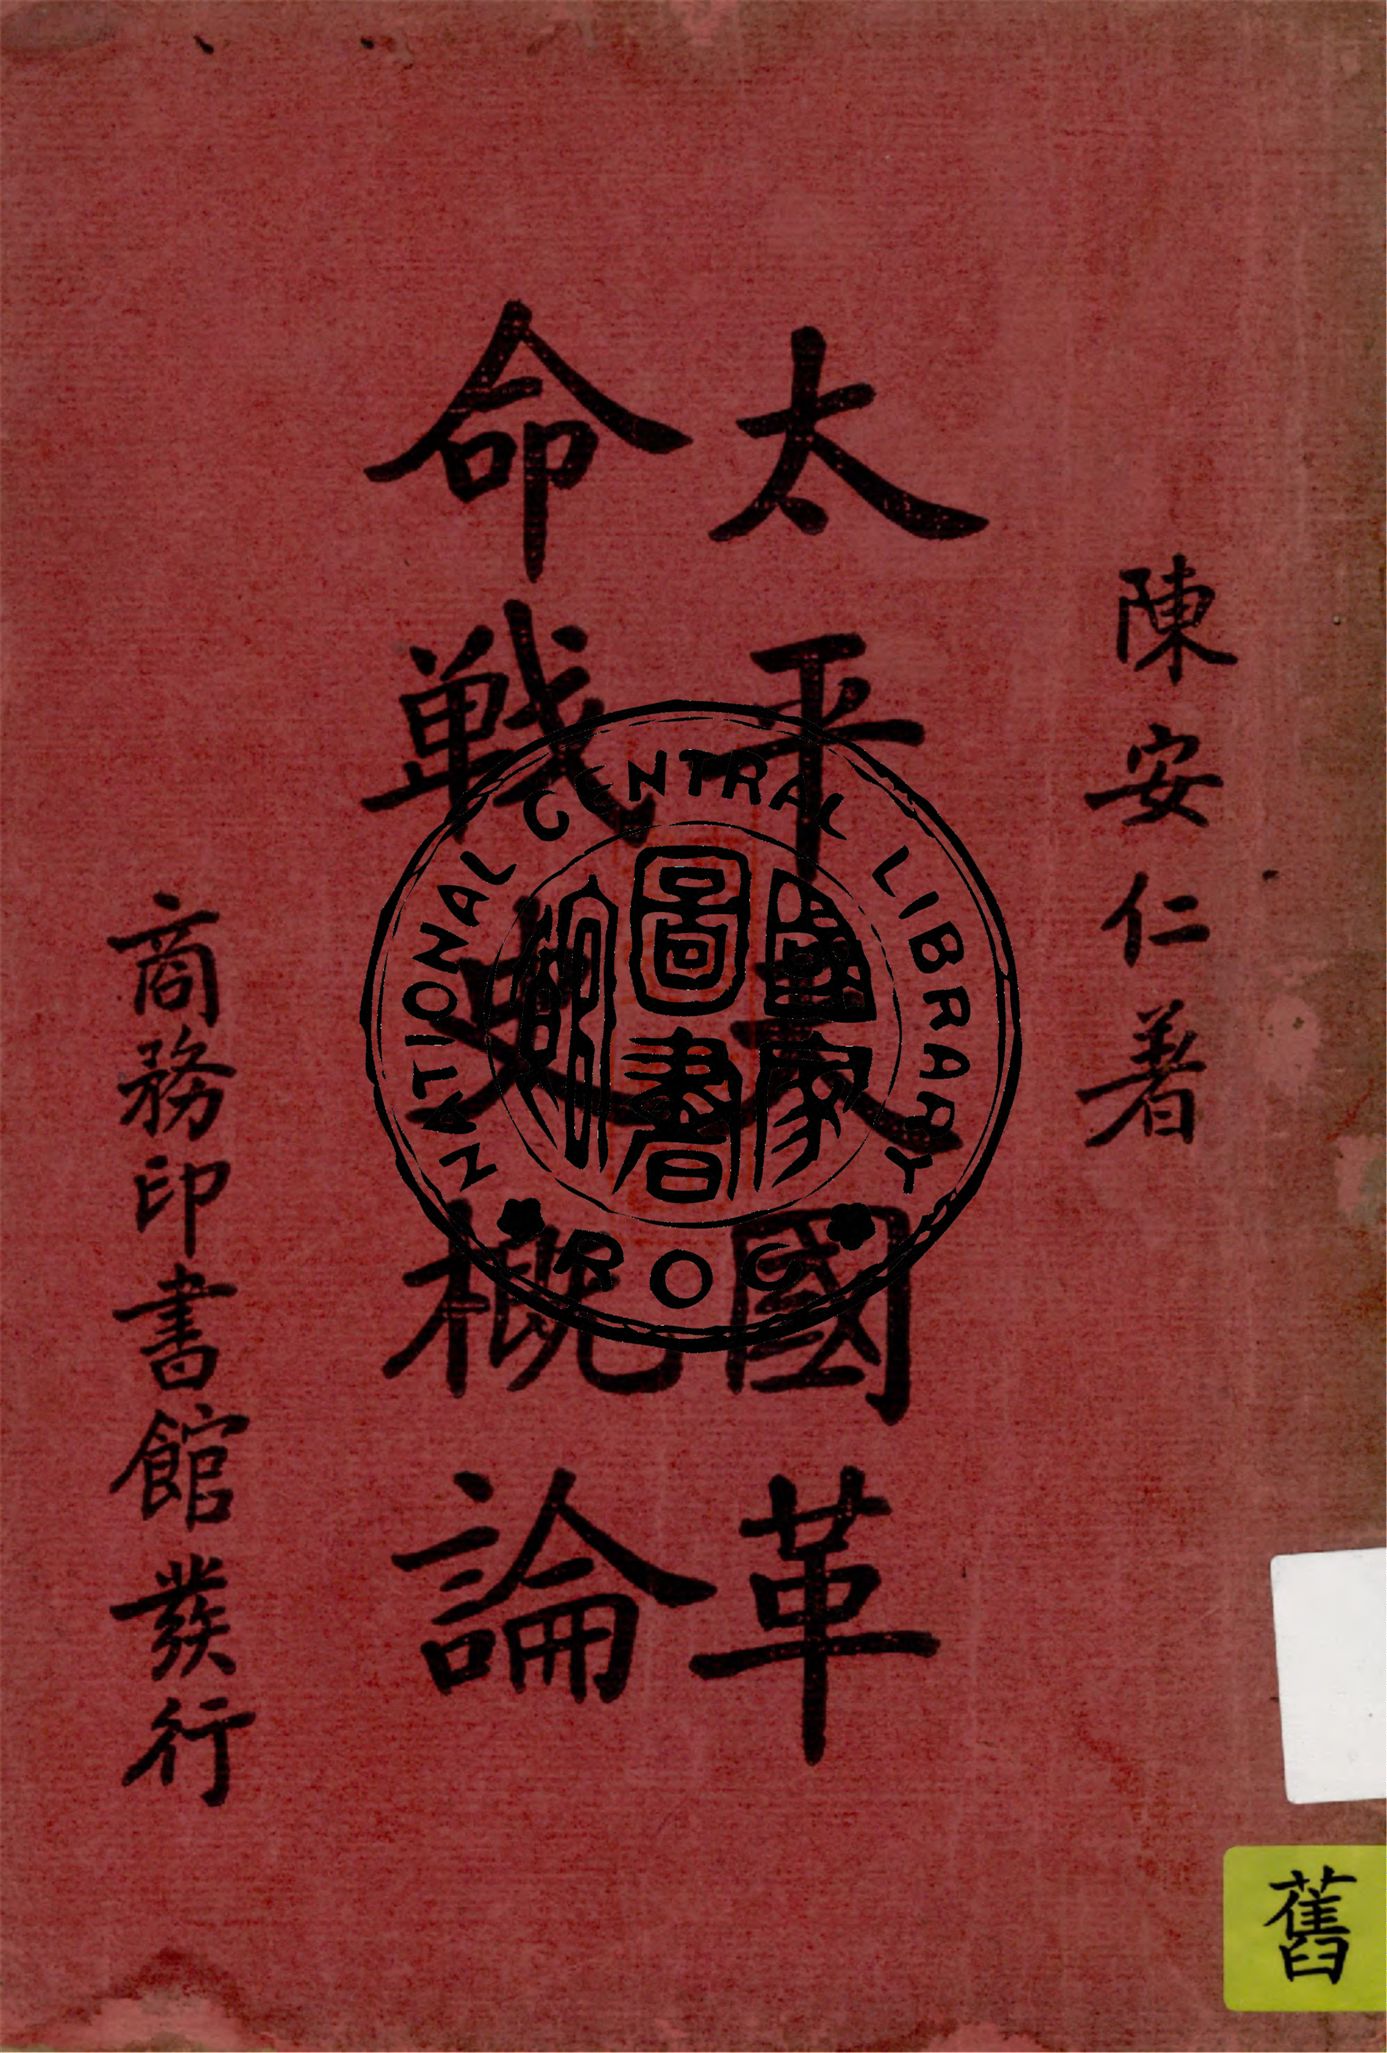 陳安仁著
太平天國革
命戰史概論
商務印書館發行
NATIONAL CENTRAL LIBRARY
國家
圖書
館
ROC
舊